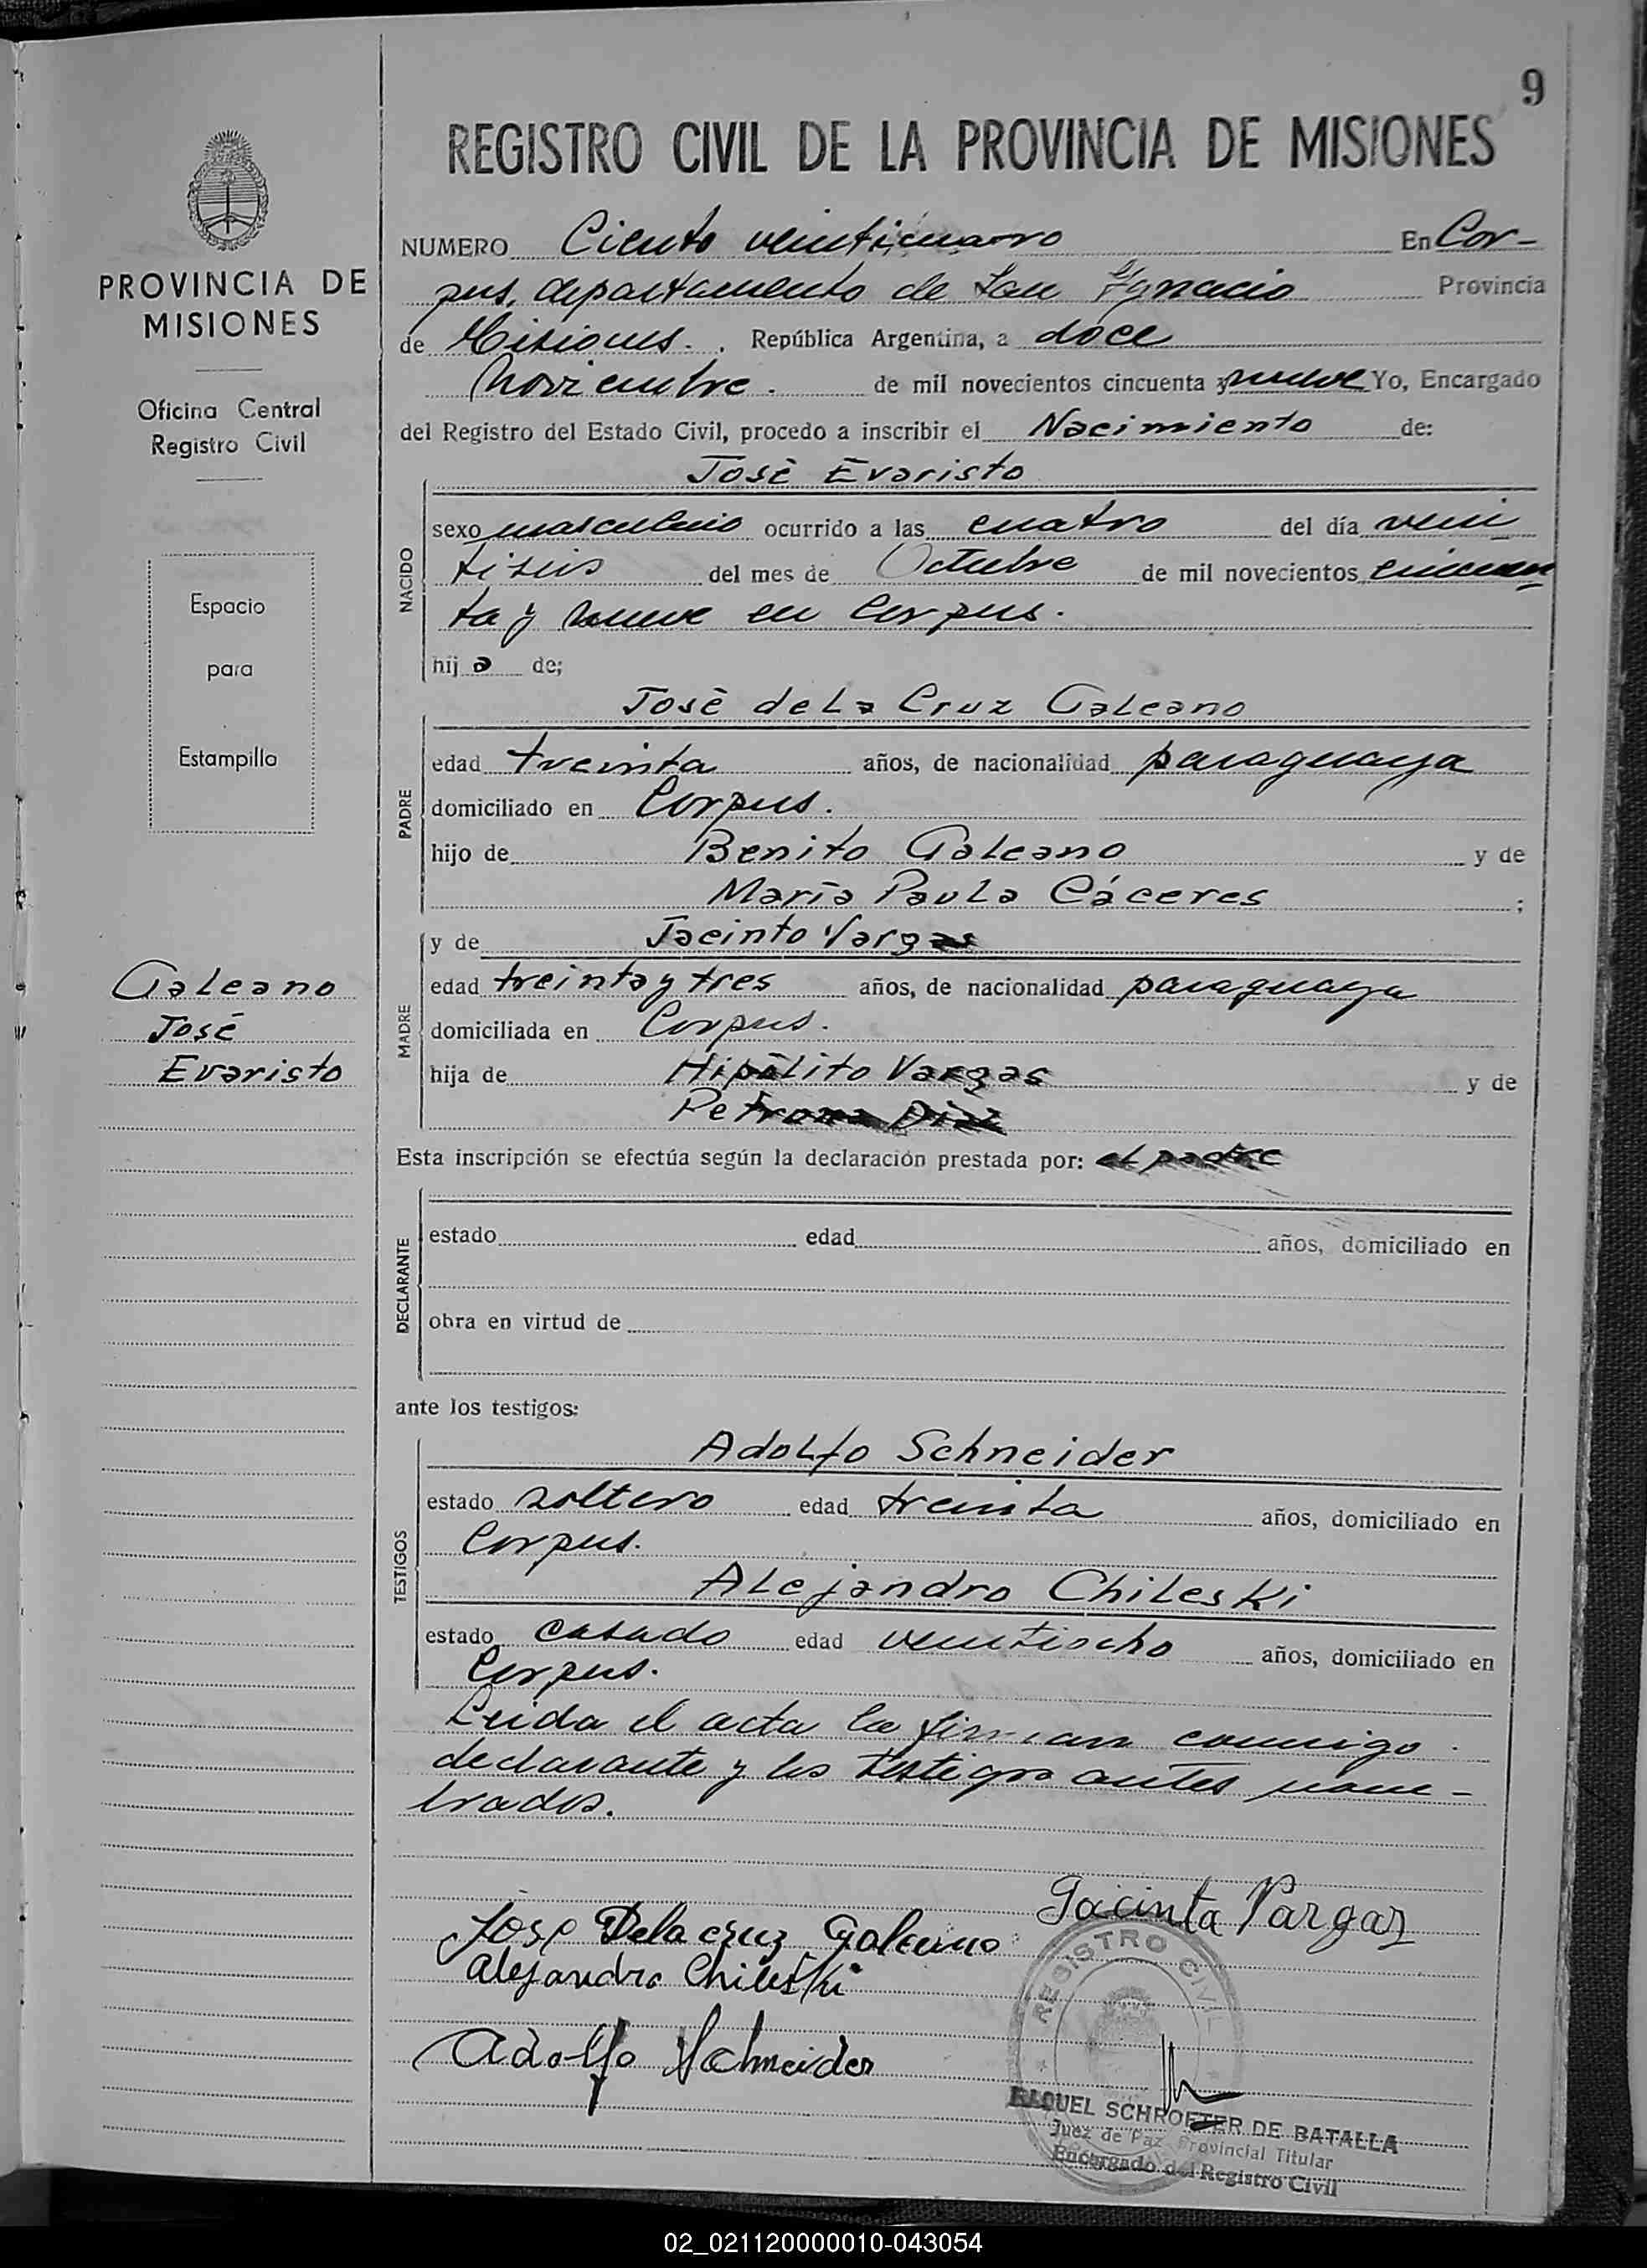 9
REGISTRO CIVIL DE LA PROVINCIA DE MISIONES
PROVINCIA DE
MISIONES
Oficina Central
Registro Civil
Espacio
para
Estampilla
Galeano
José
Evaristo
NUMERO Ciento veinticuatro En Cor-
pus, departamento de San Ygnacio Provincia
de Misiones. , República Argentina, a doce
Noviembre. de mil novecientos cincuenta y nueve Yo, Encargado
del Registro del Estado Civil, procedo a inscribir el Nacimiento de:
José Evaristo
NACIDO
sexo masculino ocurrido a las cuatro del día vein
tiseis del mes de Octubre de mil novecientos cincuen
ta y nueve en Corpus.
hij o de;
José de La Cruz Galeano
PADRE
edad treinta años, de nacionalidad paraguaya
domiciliado en Corpus.
hijo de Benito Galeano y de
María Paula Cáceres ;
MADRE
y de Jacinto Vargas
edad treinta y tres años, de nacionalidad paraguaya
domiciliada en Corpus.
hija de Hipólito Vargas y de
Petrona
Esta inscripción se efectúa según la declaración prestada por: el padre
DECLARANTE
estado edad años, domiciliado en
obra en virtud de
ante los testigos:
TESTIGOS
Adolfo Schneider
estado soltero edad treinta años, domiciliado en
Corpus.
Alejandro Chileski
estado casado edad veintiocho años, domiciliado en
Corpus.
Leida el acta la firman conmigo
declarante y los testigos antes nom-
brados.
Jacinta Vargas
Jose Dela cruz Galeano
Alejandro Chileski
Adolfo Schneider
REGISTRO CIVIL
RAQUEL SCHROETER DE BATALLA
Juez de Paz Provincial Titular
Encargado del Registro Civil
02_021120000010-043054